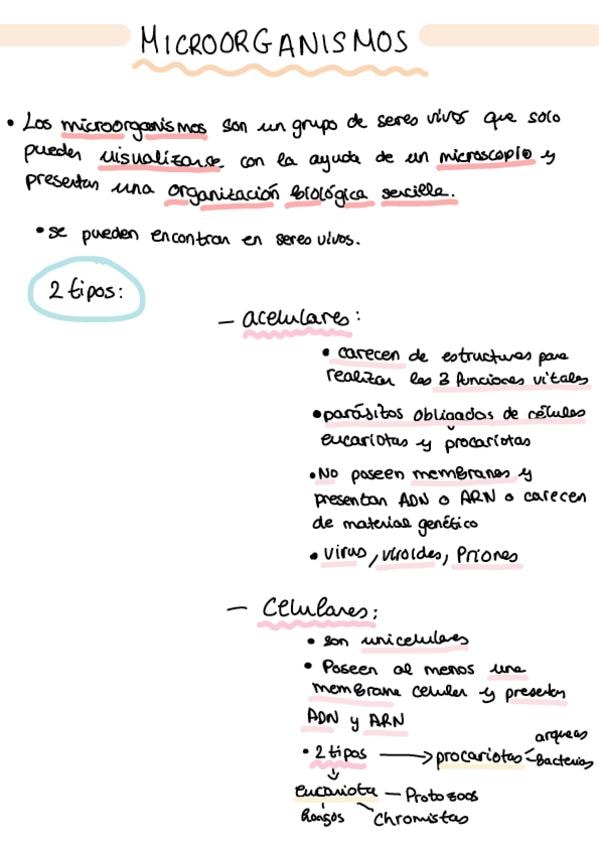 MICROORGANISMOS
• Los microorganismos son un grupo de seres vivos que solo
pueden visualizarse con la ayuda de un microscopio y
presentan una organización biológica sencilla.
• se pueden encontrar en seres vivos.
2 tipos:
– acelulares:
• carecen de estructuras para
realizar las 3 funciones vitales
• parásitos obligados de células
eucariotas y procariotas
• No poseen membranas y
presentan ADN o ARN o carecen
de material genético
• virus, viroides, Priones
– Celulares:
• son unicelulares
• Poseen al menos una
membrana celular y presentan
ADN y ARN
• 2 tipos → procariotas – arqueas
– Bacterias
↓
eucariota – Protozoos
hongos – Chromistas